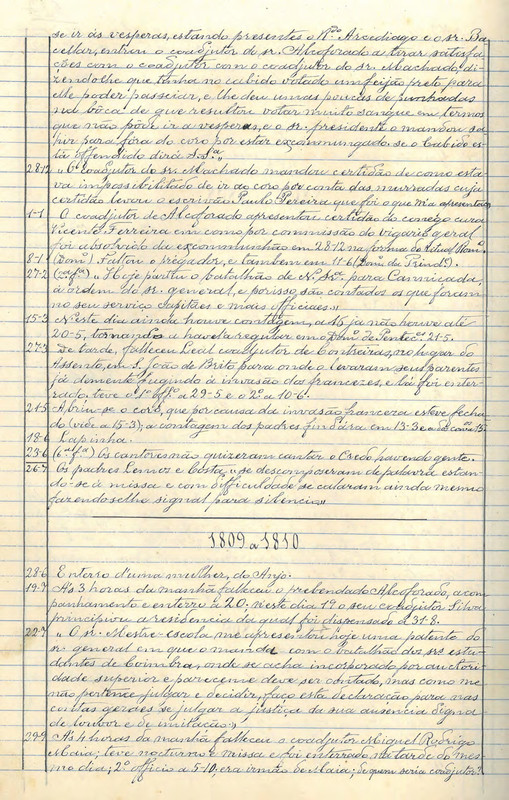 se ir ás vesperas, estando presentes o R.do Arcediago e o sr. Ba-
cellar, entrou o coadjutor do sr. Alcoforado a tirar satisfa-
ções com o coadjutor com o coadjutor do sr. Machado, di-
zendo lhe que tinha no cabido votado um feijão preto para
elle poder passeiar, e lhe deu umas poucas de punhadas
na bôca de que resultou votar muito sangue em termos
que não pôde ir a vesperas, e o sr. presidente o mandou sa-
hir para fóra do coro por estar excommungado. se o Cabido es-
tá offendido dirá S. S.ia
28-12 „ O coadjutor do sr. Machado mandou certidão de como esta-
va impossibilitado de ir ao coro por conta das murradas cuja
certidão levou o escrivão Paulo Pereira que foi o que m'a apresentou
1-1 O coadjutor de Alcoforado apresentou certidão do conego cura
Vicente Ferreira em como por commissão do vigario geral
foi absolvido da excommunhão em 28-12 na forma do Ritual Rom.
8-1 (Dom.) Faltou o prégador, e tambem em 11-6 (Dom. da Trind.e).
27-2 (2.a f.a) „ Hoje partiu o batalhão de N. Sr.a para Canniçada,
á ordem do sr. general, e por isso, são contados os que foram
no seu serviço Capitães e mais officiaes „
15-3 N'este dia ainda houve contagem, a 16 já não houve até
20-5, tornando a havel-a regular em Dom.o de Pentec.es 21-5.
27-3 De tarde, falleceu Leal coadjutor de Contreiras, no lugar do
Assento, em S. João de Brito para onde o levaram seus parentes
já demente fugindo á invasão dos francezes, e lá foi enter-
rado, teve o 1.o off.o a 29-5 e o 2.o a 10-6.
21-5 Abriu-se o coro, que por causa da invasão franceza esteve fecha-
do (vide a 15-3); a contagem dos padres findára em 13-3
18-6 Lapinha.
23-6 (6.a f.a) Os cantores não quizeram cantar o Credo, havendo gente.
26-7 Os padres Lemos e Costa „ se descomposeram de palavra estan-
do-se á missa e com difficuldade se calaram ainda mesmo
fazendo se lho signal para silencio „
1809 a 1810
28-6 Enterro d'uma mulher, do Anjo.
19-7 Ás 3 horas da manhã falleceu o prebendado Alcoforado, acom-
panhamento e enterro a 20; n'este dia 19 o seu coadjutor Silva
principiou a residencia da qual foi dispensado a 31-8.
22-7 „ O sr. Mestre-escola me apresentou hoje uma patente do
sr. general em que o manda com o batalhão dos srs. estu-
dantes de Coimbra, onde se acha incorporado por auctori-
dade superior e parece-me deve ser contado, mas como me
não pertence julgar e decidir, faço esta declaração para nas
contas geraes se julgar a justiça da sua ausencia digna
de louvor e de imitação „
29-9 Ás 4 horas da manhã falleceu o coadjutor Miguel Rodrigo
Maia; teve nocturno e missa e foi enterrado na tarde do mes-
mo dia; 2.o officio a 5-10; era irmão de Maia; de quem seria coadjutor?